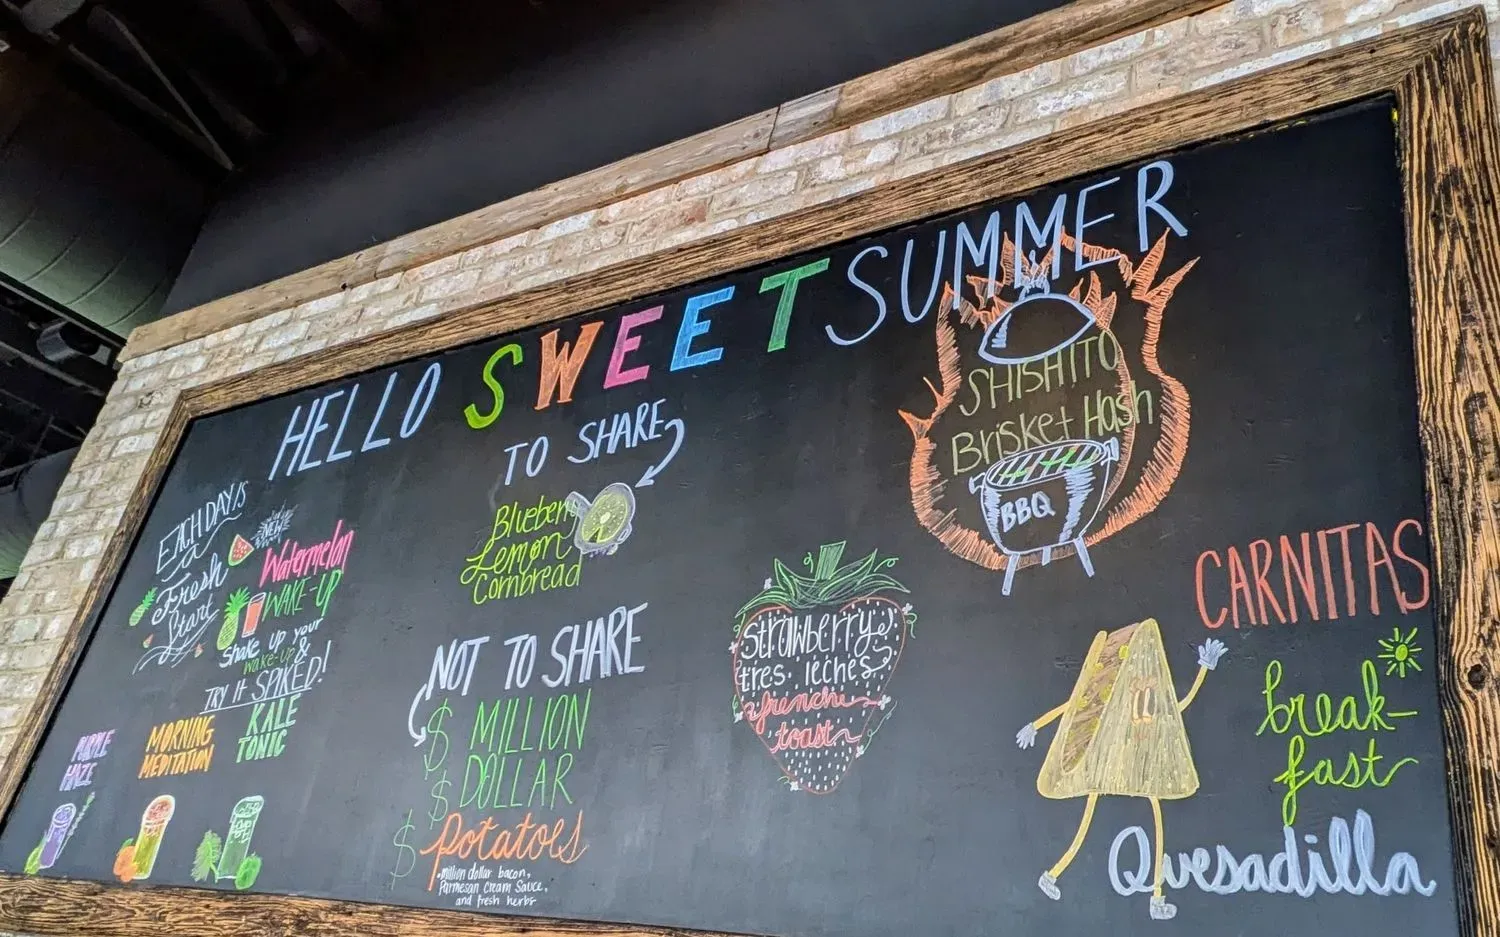 HELLO SWEET SUMMER
EACH DAY IS
a
Fresh
Start
NEW
Watermelon
WAKE-UP
Shake up your
wake-up &
TRY IT SPIKED!
PURPLE
HAZE
MORNING
MEDITATION
KALE
TONIC
TO SHARE
Blueberry
Lemon
Cornbread
NOT TO SHARE
$ MILLION
$ DOLLAR
$ Potatoes
million dollar bacon,
Parmesan Cream Sauce,
and fresh herbs
Strawberry
tres leches
french
toast
SHISHITO
Brisket Hash
BBQ
CARNITAS
break-
fast
Quesadilla